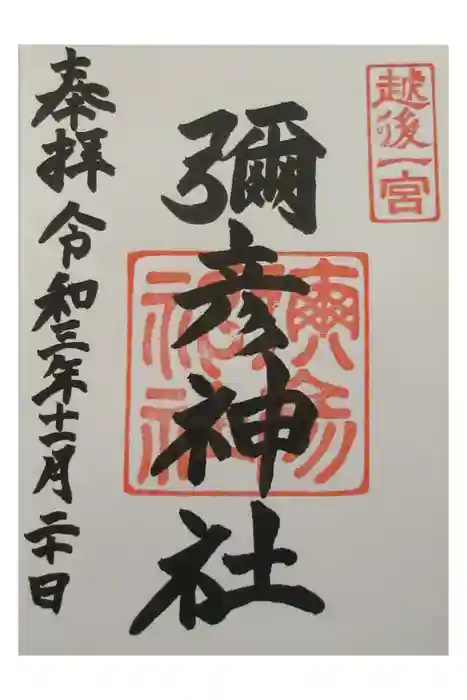 越後一宮
彌彦神社
彌彦神社
奉拝 令和三年十一月二十日